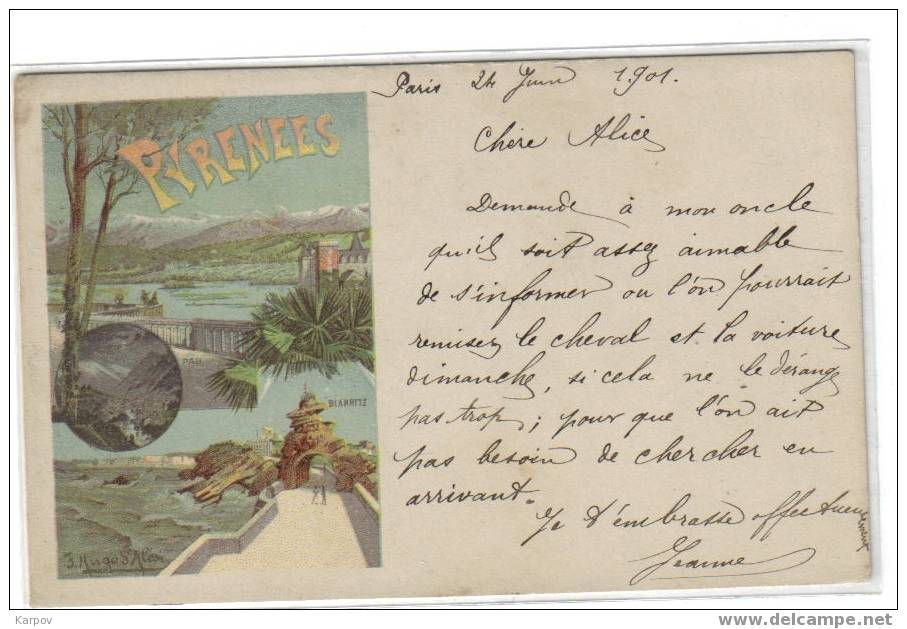 Paris 24 Juin 1901.
Chère Alice
Demande à mon oncle
qu'il soit assez aimable
de s'informer ou l'on pourrait
remisez le cheval et la voiture
dimanche, si cela ne le dérange
pas trop; pour que l'on ait
pas besoin de chercher en
arrivant.
Je t'embrasse affectueusement
Jeanne
PYRENEES
PAU
BIARRITZ
F. Hugo d'Alesi
Karpov
delcampe.net